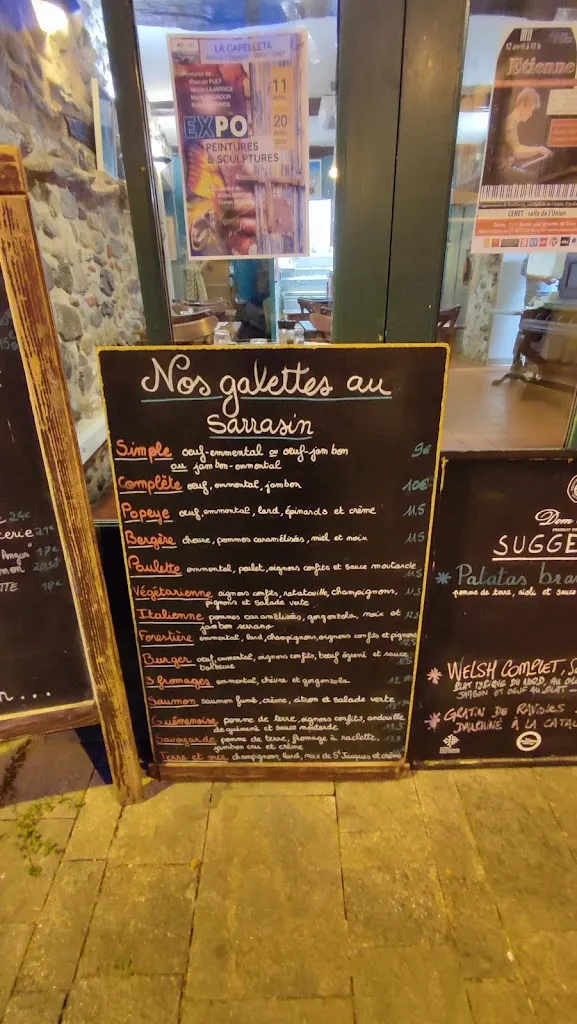 LA CAPELLETA
11
20
EXPO
PEINTURES
& SCULPTURES
12 avril à 17h
Etienne
CERET - salle de l'Union
Nos galettes au
sarrasin
Simple oeuf-emmental ou oeuf-jambon 9€
ou jambon-emmental
Complète oeuf, emmental, jambon 10€
Popeye oeuf, emmental, lard, épinards et crème 11,5
Bergère chèvre, pommes caramélisées, miel et noix 11,5
Poulette emmental, poulet, oignons confits et sauce moutarde 11,5
Végétarienne oignons confits, ratatouille, champignons, 11,5
pignons et salade verte
Italienne pommes caramélisées, gorgonzola, noix et
jambon serrano
Forestière emmental, lard, champignons, oignons confits et pignons
Burger oeuf, emmental, oignons confits, boeuf égrené et sauce
barbecue
3 fromages emmental, chèvre et gorgonzola
Saumon saumon fumé, crème, citron et salade verte
Guémenoise pomme de terre, oignons confits, andouille
de guémené et sauce moutarde
Savoyarde pomme de terre, fromage à raclette,
jambon cru et crème
Terre et mer champignons, lard, noix de St Jacques et crème
24€
cerie 21€
Angus 17€
18€
Dom
SUGGE
Patatas bra
pomme de terre, aioli et sauce
WELSH COMPLET, S
JAMBON ET OEUF AU PLAT
GRATIN DE RAVIOLES
À LA CATAL